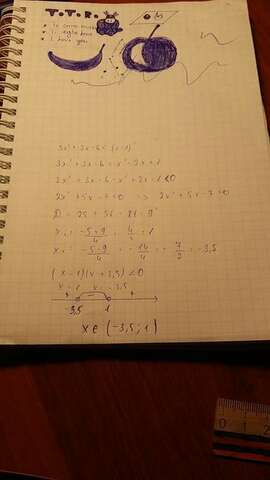 T.T.R.
3x² + 3x - 6 < (x-1)²
3x² + 3x - 6 - x² - 2x + 1
2x² + 5x - 7 < 0 => 2x² + 5x - 7 = 0
D = 25 + 56 = 81 = 9²
x₁ = -5+9/4 = 4/4 = 1
x₂ = -5-9/4 = -14/4 = -7/2 = -3,5
(x-1)(x+3,5) < 0
x = 1 x = -3,5
+ - +
-3,5 1
x ∈ (-3,5; 1)
0 1 2